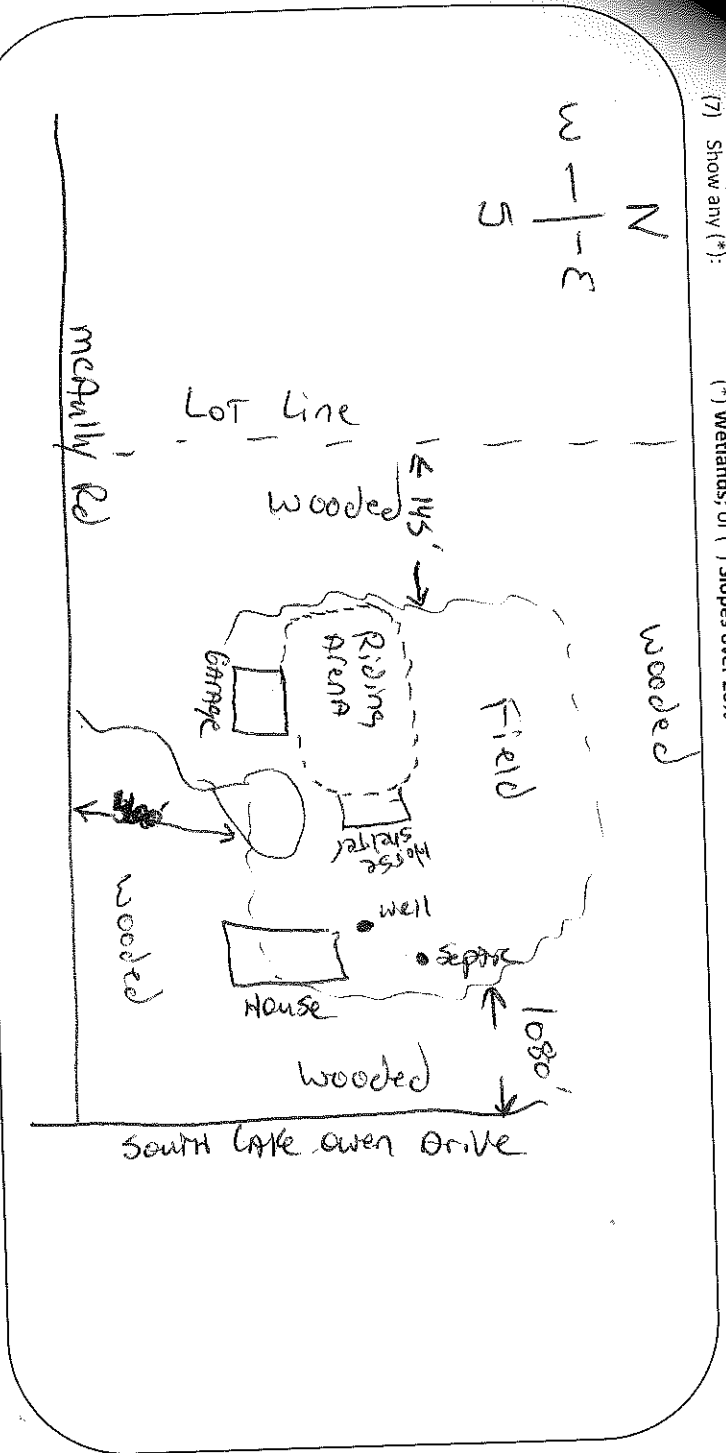 (7) Show any (*):
(*) Wetlands; or (*) Slopes over 20%
N
W
E
S
Wooded
LOT Line
Wooded
← 145' →
Field
Riding
Arena
GARAGE
Horse
Shelter
well
Septic
House
1080'
Wooded
Wooded
South Lake Owen Drive